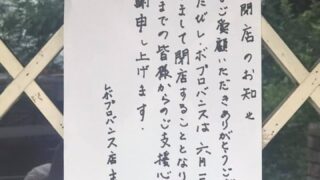 閉店のお知せ
ご愛顧いただきありがとうご
たびレ・ボプロバンスは六月三
まして閉店することとなり
までの皆様からのご支援心
謝申し上げます。
レボプロバンス店主